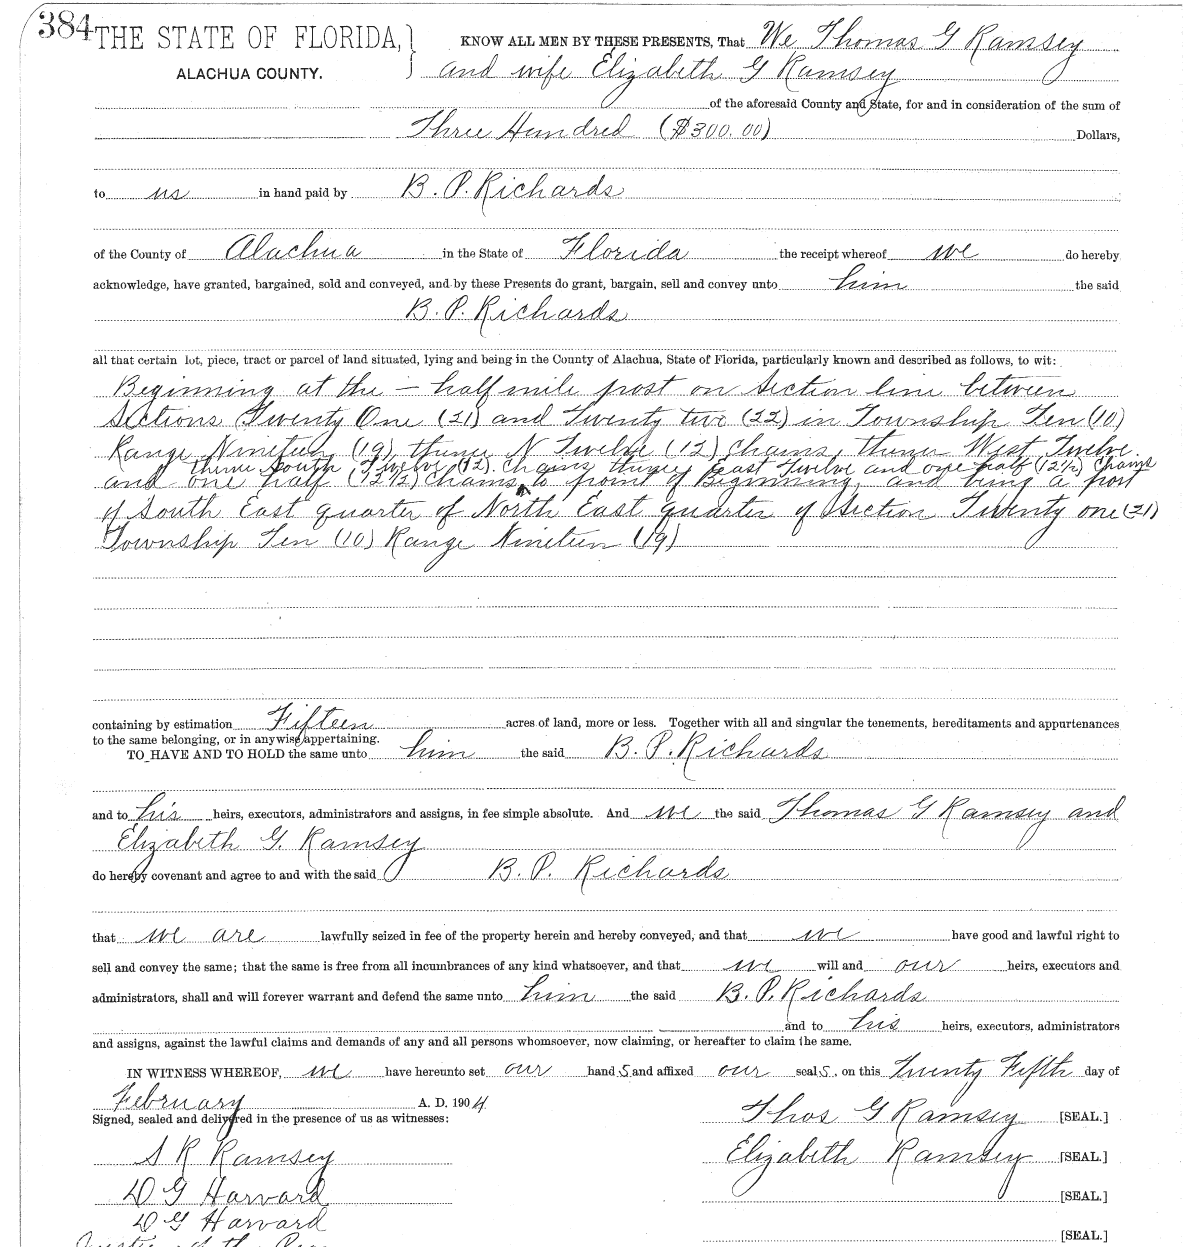 384
THE STATE OF FLORIDA, } KNOW ALL MEN BY THESE PRESENTS, That We Thomas G Ramsey
ALACHUA COUNTY. and wife Elizabeth G Ramsey
of the aforesaid County and State, for and in consideration of the sum of
Three Hundred ($300.00) Dollars,
to us in hand paid by B. P. Richards
of the County of Alachua in the State of Florida the receipt whereof we do hereby
acknowledge, have granted, bargained, sold and conveyed, and by these Presents do grant, bargain, sell and convey unto him the said
B. P. Richards
all that certain lot, piece, tract or parcel of land situated, lying and being in the County of Alachua, State of Florida, particularly known and described as follows, to wit:
Beginning at the — half mile post on Section line between
Sections Twenty One (21) and Twenty two (22) in Township Ten (10)
Range Nineteen (19) thence N Twelve (12) chains, thence West Twelve
thence South Twelve (12) chains thence East Twelve and one half (12½) chains
and one half (12½) chains, to point of Beginning, and being a part
of South East quarter of North East quarter of Section Twenty one (21)
Township Ten (10) Range Nineteen (19)
containing by estimation Fifteen acres of land, more or less. Together with all and singular the tenements, hereditaments and appurtenances
to the same belonging, or in anywise appertaining.
TO HAVE AND TO HOLD the same unto him the said B. P. Richards
and to his heirs, executors, administrators and assigns, in fee simple absolute. And we the said Thomas G Ramsey and
Elizabeth G. Ramsey
do hereby covenant and agree to and with the said B. P. Richards
that we are lawfully seized in fee of the property herein and hereby conveyed, and that we have good and lawful right to
sell and convey the same; that the same is free from all incumbrances of any kind whatsoever, and that we will and our heirs, executors and
administrators, shall and will forever warrant and defend the same unto him the said B. P. Richards
and to his heirs, executors, administrators
and assigns, against the lawful claims and demands of any and all persons whomsoever, now claiming, or hereafter to claim the same.
IN WITNESS WHEREOF, we have hereunto set our hand s and affixed our seal s. on this Twenty Fifth day of
February A. D. 1904
Signed, sealed and delivered in the presence of us as witnesses: Thos G Ramsey [SEAL.]
S R Ramsey Elizabeth Ramsey [SEAL.]
D G Harvard [SEAL.]
D G Harvard
Justice of the Peace [SEAL.]